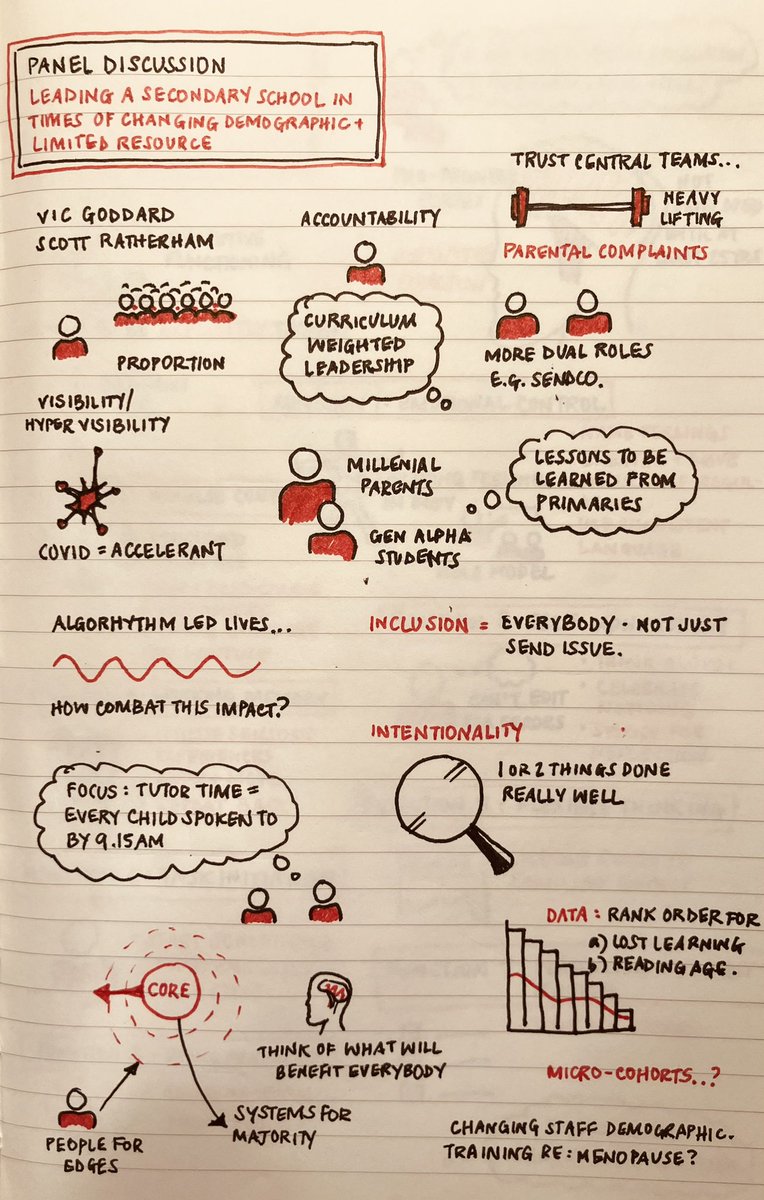 PANEL DISCUSSION
LEADING A SECONDARY SCHOOL IN
TIMES OF CHANGING DEMOGRAPHIC +
LIMITED RESOURCE
VIC GODDARD
SCOTT RATHERHAM
PROPORTION
VISIBILITY/
HYPER VISIBILITY
COVID = ACCELERANT
ACCOUNTABILITY
CURRICULUM
WEIGHTED
LEADERSHIP
TRUST CENTRAL TEAMS...
HEAVY
LIFTING
PARENTAL COMPLAINTS
MORE DUAL ROLES
E.G. SENDCO.
MILLENIAL
PARENTS
GEN ALPHA
STUDENTS
LESSONS TO BE
LEARNED FROM
PRIMARIES
ALGORHYTHM LED LIVES...
HOW COMBAT THIS IMPACT?
INCLUSION = EVERYBODY - NOT JUST
SEND ISSUE.
INTENTIONALITY
1 OR 2 THINGS DONE
REALLY WELL
FOCUS: TUTOR TIME =
EVERY CHILD SPOKEN TO
BY 9.15AM
CORE
PEOPLE FOR
EDGES
SYSTEMS FOR
MAJORITY
THINK OF WHAT WILL
BENEFIT EVERYBODY
DATA: RANK ORDER FOR
a) LOST LEARNING
b) READING AGE.
MICRO-COHORTS..?
CHANGING STAFF DEMOGRAPHIC.
TRAINING RE: MENOPAUSE?